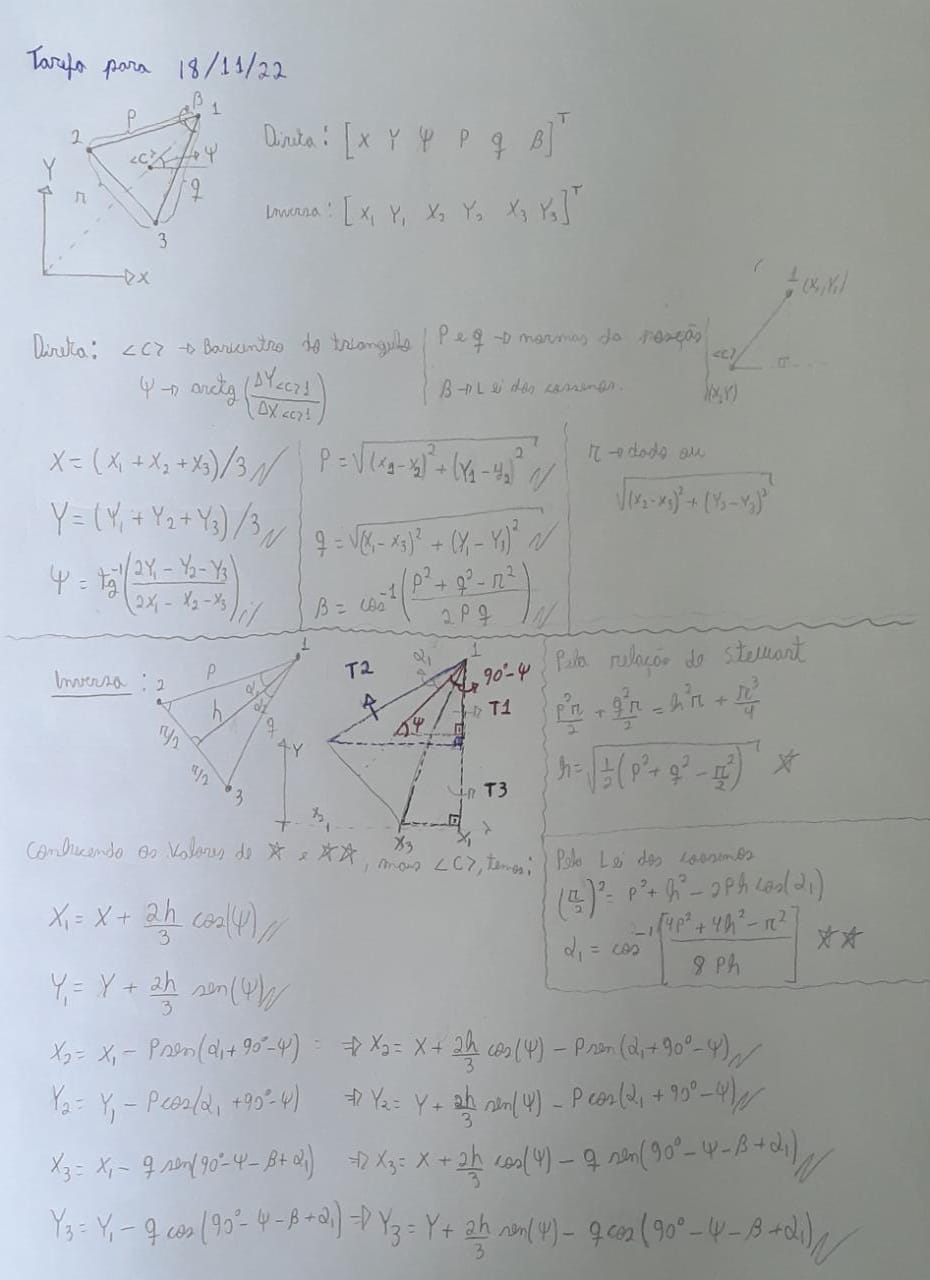 Tarefa para 18/11/22
β
P
1
2
<C>
Ψ
Y
r
q
3
X
Direta: [X Y Ψ P q β]ᵀ
Inversa: [X₁ Y₁ X₂ Y₂ X₃ Y₃]ᵀ
1 (X₁,Y₁)
<C>
(X,Y)
Direta: <C> → Baricentro do triangulo
Ψ → arctg (ΔY<C>1 / ΔX<C>1)
P e q → normas da posição
β → Lei dos cossenos.
X = (X₁ + X₂ + X₃)/3
Y = (Y₁ + Y₂ + Y₃)/3
Ψ = tg⁻¹ ((2Y₁ - Y₂ - Y₃) / (2X₁ - X₂ - X₃))
P = √((x₁ - x₂)² + (Y₁ - y₂)²)
q = √((X₁ - X₃)² + (Y₁ - Y₃)²)
β = cos⁻¹ ((P² + q² - r²) / (2Pq))
r → dado ou
√((X₂ - X₃)² + (Y₂ - Y₃)²)
Inversa:
2
P
1
α₁
h
q
r/2
r/2
3
T2
α₁
1
90°-Ψ
T1
Ψ
T3
Y
X₂
X₃
X₁
Pela relação de Stewart
P²r/2 + q²r/2 = h²r + r³/4
h = √(1/2 (P² + q² - r²/2)) ☆
Conhecendo os valores de ☆ e ☆☆, mais <C>, temos:
Pela Lei dos cossenos
(r/2)² = P² + h² - 2Ph cos(α₁)
α₁ = cos⁻¹ [(4P² + 4h² - r²) / (8Ph)] ☆☆
X₁ = X + 2h/3 cos(Ψ)
Y₁ = Y + 2h/3 sen(Ψ)
X₂ = X₁ - P sen(α₁ + 90° - Ψ) ⇒ X₂ = X + 2h/3 cos(Ψ) - P sen(α₁ + 90° - Ψ)
Y₂ = Y₁ - P cos(α₁ + 90° - Ψ) ⇒ Y₂ = Y + 2h/3 sen(Ψ) - P cos(α₁ + 90° - Ψ)
X₃ = X₁ - q sen(90° - Ψ - β + α₁) ⇒ X₃ = X + 2h/3 cos(Ψ) - q sen(90° - Ψ - β + α₁)
Y₃ = Y₁ - q cos(90° - Ψ - β + α₁) ⇒ Y₃ = Y + 2h/3 sen(Ψ) - q cos(90° - Ψ - β + α₁)